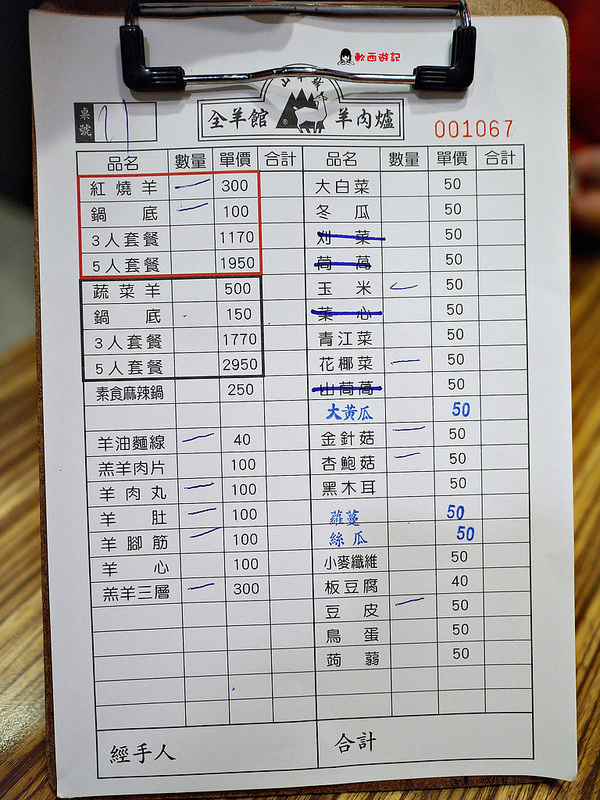 軟西遊記
桌號 21
全羊館 羊肉爐 001067
品名 數量 單價 合計 品名 數量 單價 合計
紅燒羊 一 300 大白菜 50
鍋底 一 100 冬瓜 50
3人套餐 1170 刈菜 50
5人套餐 1950 茼萵 50
蔬菜羊 500 玉米 一 50
鍋底 150 菜心 50
3人套餐 1770 青江菜 50
5人套餐 2950 花椰菜 一 50
素食麻辣鍋 250 山茼萵 50
大黃瓜 50
羊油麵線 一 40 金針菇 一 50
羔羊肉片 100 杏鮑菇 一 50
羊肉丸 一 100 黑木耳 50
羊肚 一 100 蘿蔓 50
羊腳筋 一 100 絲瓜 50
羊心 100 小麥纖維 50
羔羊三層 一 300 板豆腐 40
豆皮 一 50
鳥蛋 50
蒟蒻 50
經手人 合計